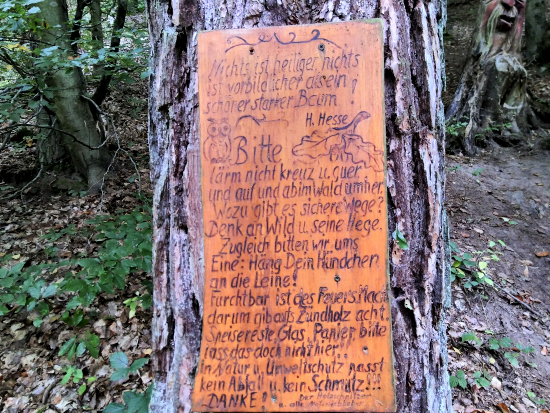 Nichts ist heiliger, nichts
ist vorbildlicher als ein
schöner starker Baum!
H. Hesse
Bitte
lärm nicht kreuz u. quer
und auf und ab im Wald umher
Wozu gibt es sichere Wege?
Denk an Wild u. seine Hege.
Zugleich bitten wir ums
Eine: Häng Dein Hündchen
an die Leine!
Furchtbar ist des Feuers Macht
darum gib aufs Zündholz acht.
Speisereste, Glas, Papier, bitte
lass das doch nicht hier
In Natur u. Umweltschutz passt
kein Abfall u. kein Schmutz!!!
DANKE! Der Holzschnitzer
u. alle Naturliebhaber